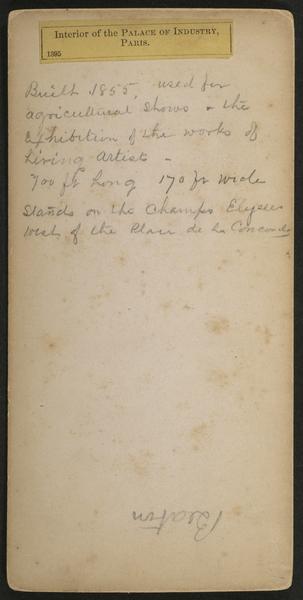 Interior of the PALACE OF INDUSTRY,
PARIS.
1395
Built 1855, used for
agricultural shows & the
Exhibition of the works of
Living Artists -
700 ft Long 170 ft wide
Stands on the Champs Elysees
West of the Place de la Concorde